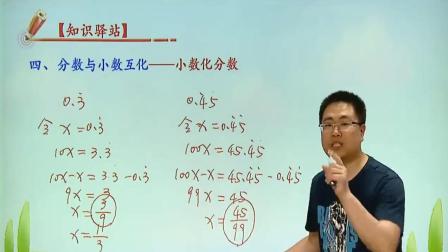 【知识驿站】
四、分数与小数互化——小数化分数
0.3̇
令 x=0.3̇
100x=3.3̇
10x-x=3.3̇-0.3̇
9x=3
x=3/9
x=1/3
0.4̇5̇
令 x=0.4̇5̇
100x=45.4̇5̇
100x-x=45.4̇5̇-0.4̇5̇
99x=45
x=45/99